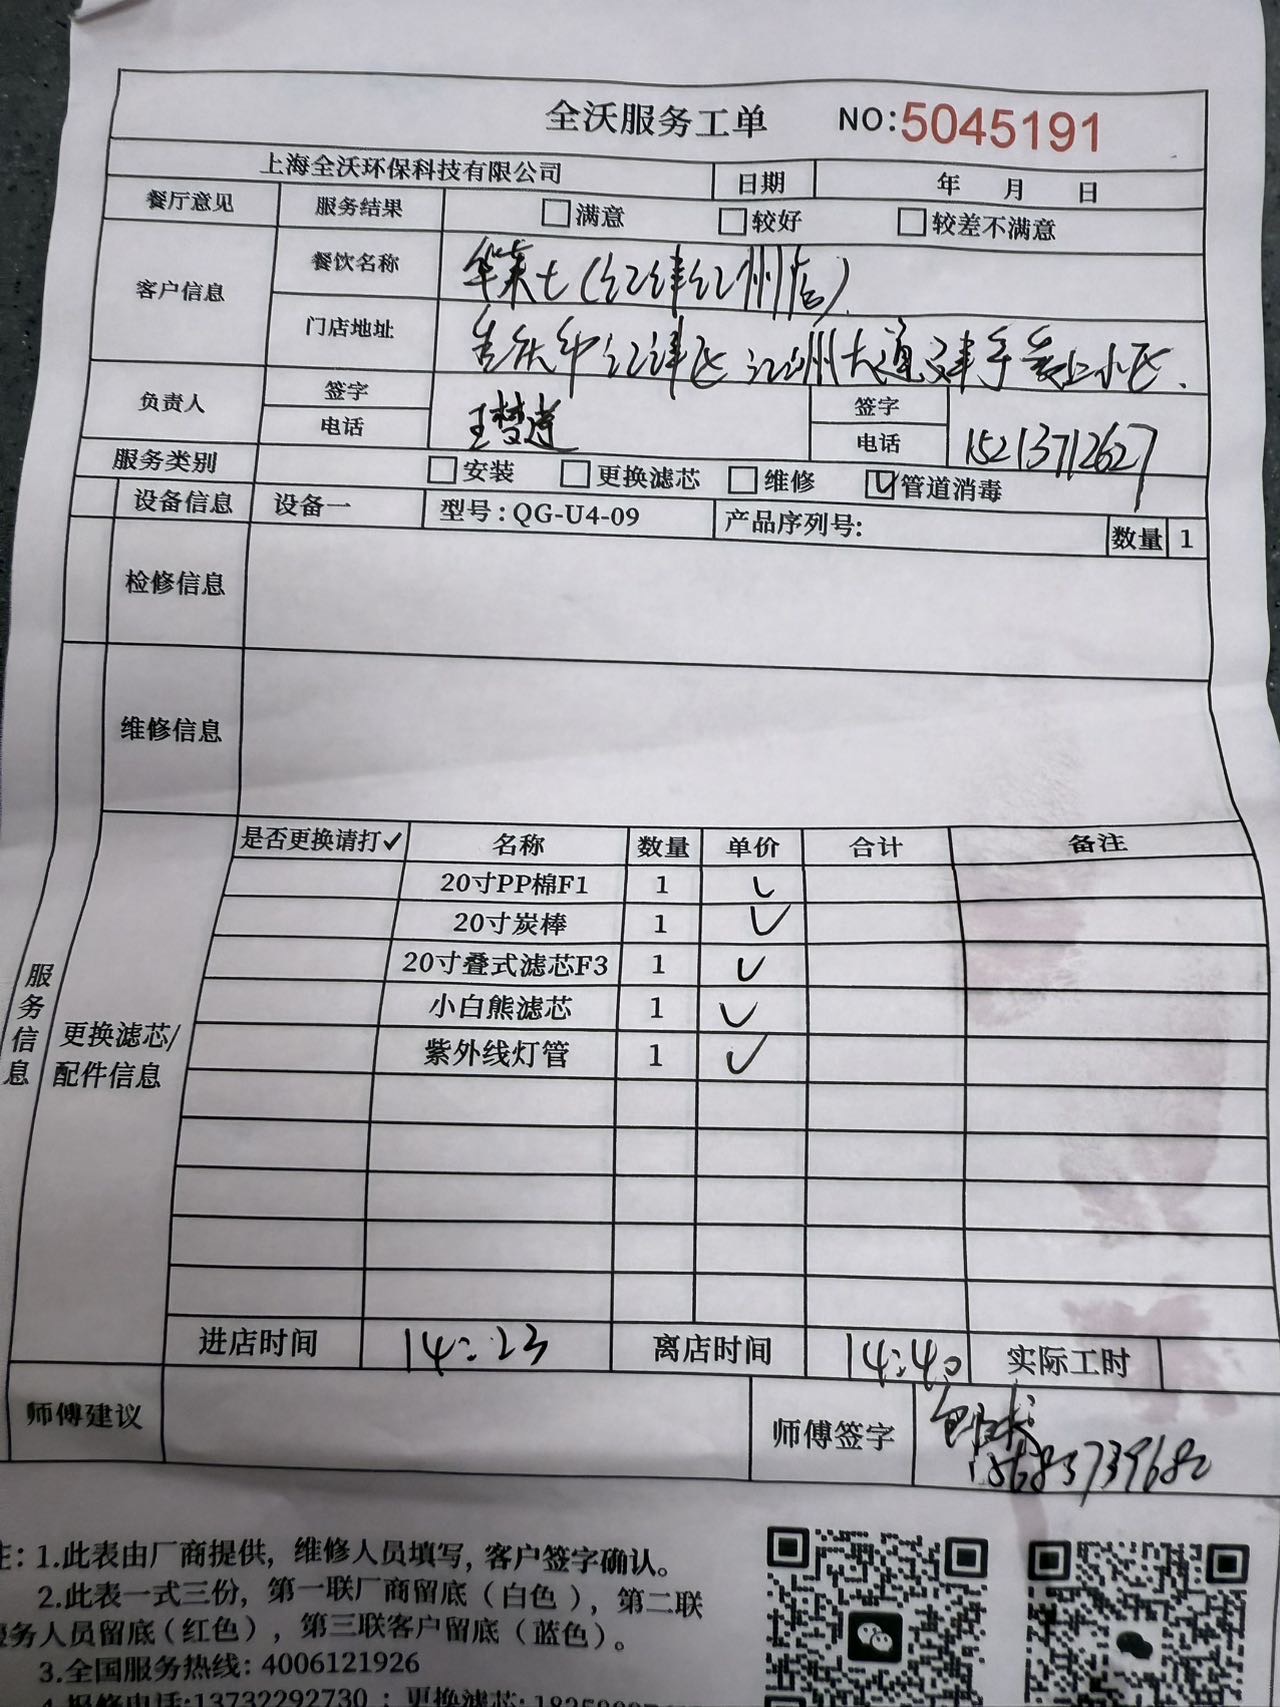 全沃服务工单 NO:5045191
上海全沃环保科技有限公司 日期 年 月 日
餐厅意见 服务结果 □满意 □较好 □较差不满意
客户信息 餐饮名称 华莱士(江津江州店)
门店地址 重庆市江津区江州大道 上小区
负责人 签字 王梦莲 签字
电话 电话 15213712627
服务类别 □安装 □更换滤芯 □维修 ☑管道消毒
设备信息 设备一 型号:QG-U4-09 产品序列号: 数量 1
检修信息
维修信息
服务信息
更换滤芯/配件信息
是否更换请打✓ 名称 数量 单价 合计 备注
20寸PP棉F1 1 ✓
20寸炭棒 1 ✓
20寸叠式滤芯F3 1 ✓
小白熊滤芯 1 ✓
紫外线灯管 1 ✓
进店时间 14:23 离店时间 14:40 实际工时
师傅建议 师傅签字
注:1.此表由厂商提供,维修人员填写,客户签字确认。
2.此表一式三份,第一联厂商留底(白色),第二联
服务人员留底(红色),第三联客户留底(蓝色)。
3.全国服务热线:4006121926
4.报修电话:13732292730;更换滤芯: